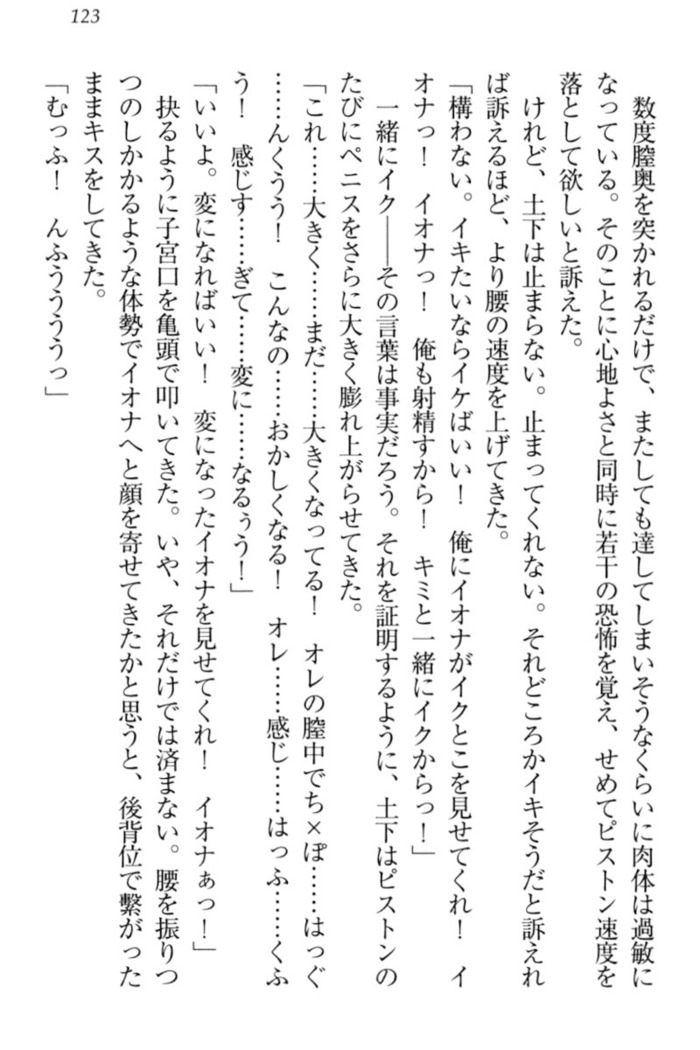 123
　数度膣奥を突かれるだけで、またしても達してしまいそうなくらいに肉体は過敏に
なっている。そのことに心地よさと同時に若干の恐怖を覚え、せめてピストン速度を
落として欲しいと訴えた。
　けれど、土下は止まらない。止まってくれない。それどころかイキそうだと訴えれ
ば訴えるほど、より腰の速度を上げてきた。
「構わない。イキたいならイケばいい！　俺にイオナがイクとこを見せてくれ！　イ
オナっ！　イオナっ！　俺も射精すから！　キミと一緒にイクからっ！」
　一緒にイク――その言葉は事実だろう。それを証明するように、土下はピストンの
たびにペニスをさらに大きく膨れ上がらせてきた。
「これ……大きく……まだ……大きくなってる！　オレの膣中でち×ぽ……はっぐ
……んくうう！　こんなの……おかしくなる！　オレ……感じ……はっふ……くふ
う！　感じす……ぎて……変に……なるぅう！」
「いいよ。変になればいい！　変になったイオナを見せてくれ！　イオナぁっ！」
　抉るように子宮口を亀頭で叩いてきた。いや、それだけでは済まない。腰を振りつ
つのしかかるような体勢でイオナへと顔を寄せてきたかと思うと、後背位で繋がった
ままキスをしてきた。
「むっふ！　んふうううぅっ」